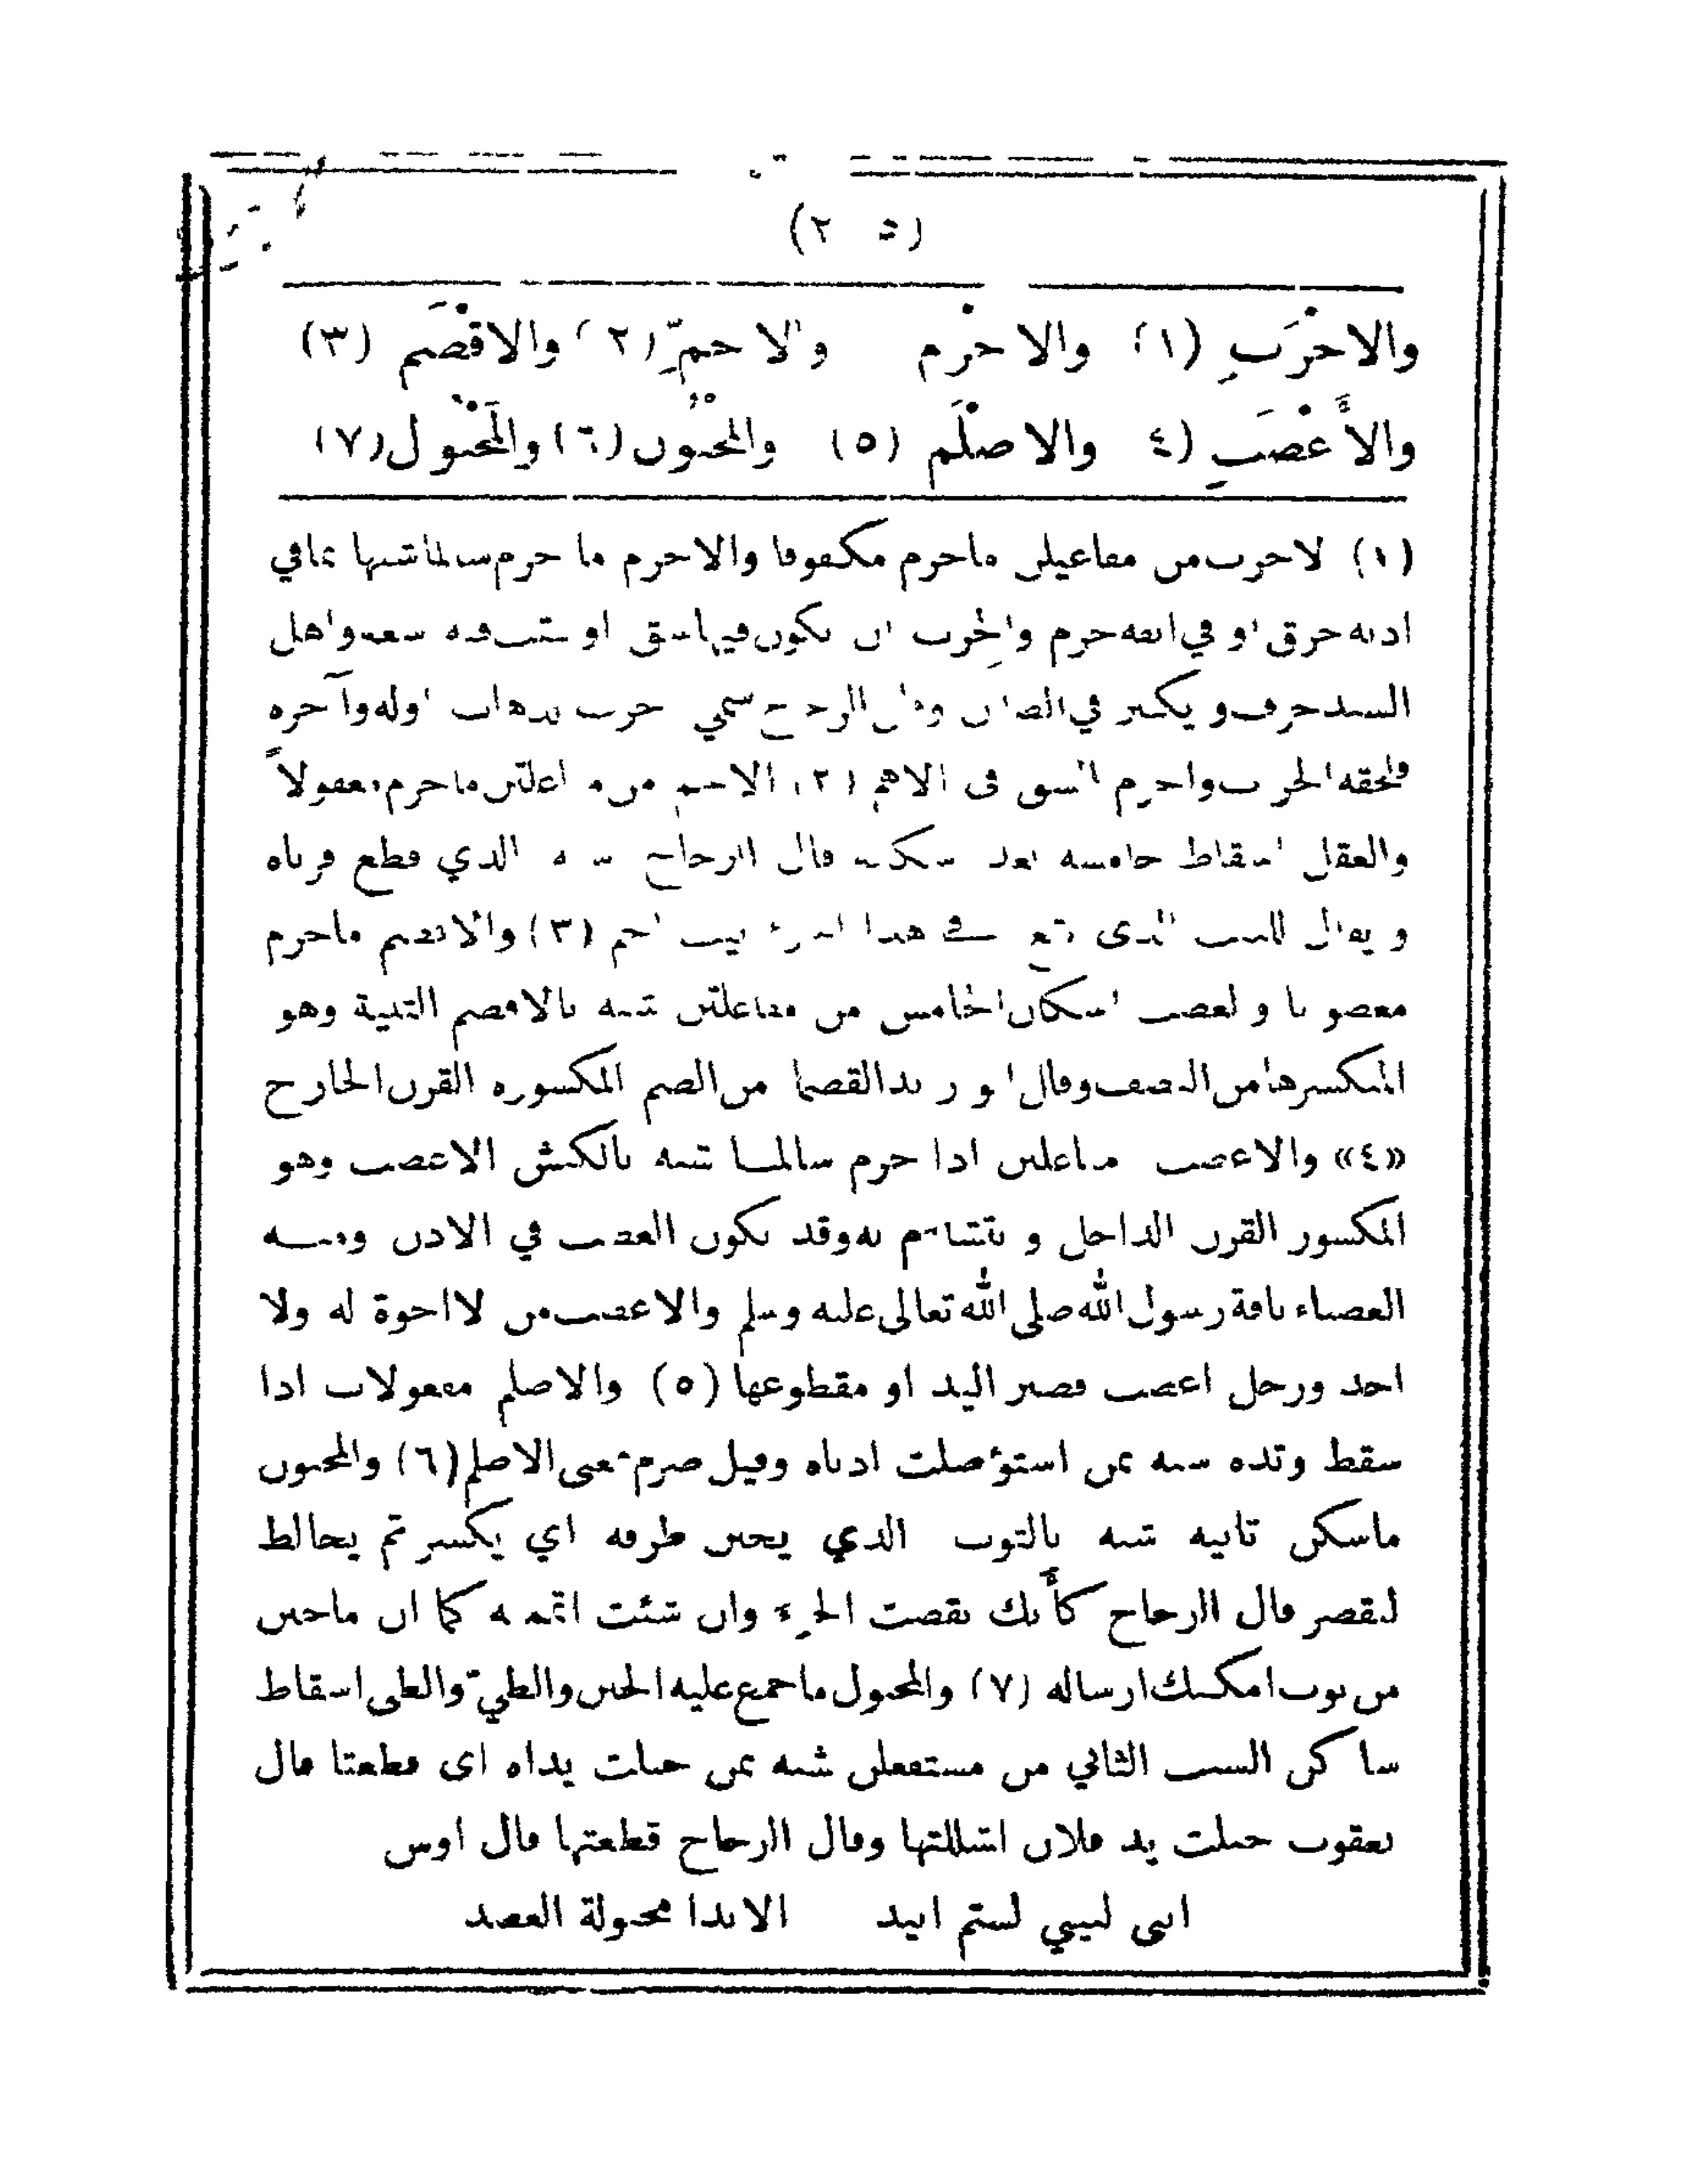 (٢٥)
والاخْرَبِ (١) والاخْرم والاجمِّ (٢) والاقْصَم (٣)
والأَعْضَبِ (٤) والاصْلَم (٥) والمخْبُون (٦) والمَخْبُول (٧)
(١) لاخرب من مفاعيلن ماخرم مكفوفا والاخرم ما خرم سالما شبها بما في
اذنه خرق او في انفه خرم والخرب ان يكون فيها شق او ثقب فيه سعة واهل
السند خرب ويكسر في الصان الزجاج سمي خرب بذهاب اوله وآخره
فلحقه الخراب واخرم الشق في الاجم (٢) الاجم من مفاعلتن ماخرم معقولاً
والعقل اسقاط خامسه بعد سكونه قال الزجاج شبه الذي قطع قرناه
ويقال للبيت الذي يقع في هذا الجزء بيت اجم (٣) والاقصم ماخرم
معصوبا والعصب اسكان الخامس من مفاعلتن شبه بالاقصم الثنية وهو
المنكسرها من النصف وقال ابو زيد القصما من الضم المكسوره القرن الخارج
«٤» والاعضب مفاعلتن اذا خرم سالما شبه بالكبش الاعضب وهو
المكسور القرن الداخل و يتشام به وقد يكون العضب في الاذن ومنه
العضباء ناقة رسول الله صلى الله تعالى عليه وسلم والاعضب من لا اخوة له ولا
احد ورجل اعضب قصير اليد او مقطوعها (٥) والاصلم مفعولات اذا
سقط وتده شبه بمن استؤصلت اذناه وقيل صرم بمعنى الاصلم (٦) والمخبون
ماسكن ثانيه شبه بالثوب الذي يخبن طرفه اي يكسر ثم يخاط
ليقصر قال الزجاج كأنك نقصت الجزء وان شئت اتممته كما ان ماخبن
من ثوب امكنك ارساله (٧) والمخبول ماجمع عليه الخبن والطيّ والطى اسقاط
ساكن السبب الثاني من مستفعلن شبه بمن خبلت يداه اى قطعتا قال
يعقوب خبلت يد فلان اشللتها وقال الزجاج قطعتها قال اوس
ابنى لبيني لستم ابيد الا يدا مخبولة العضد